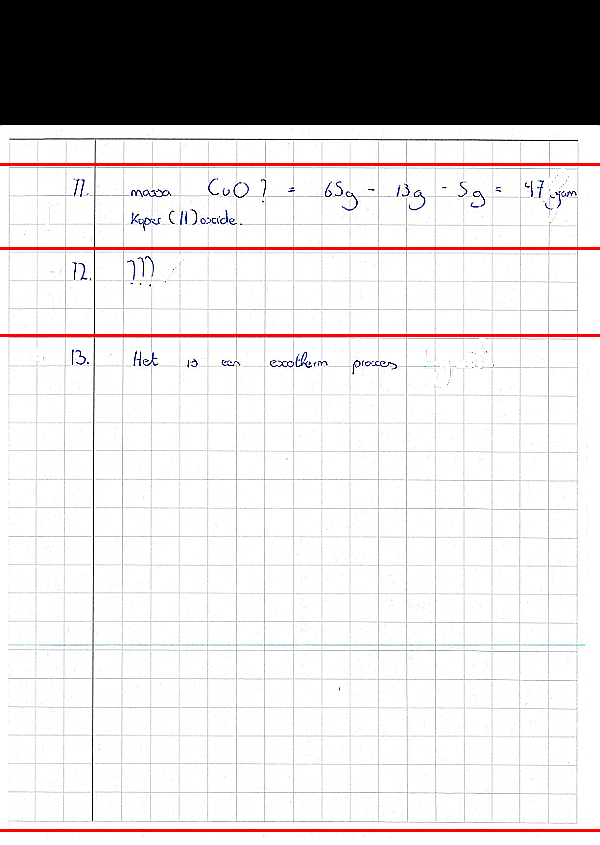 11. massa CuO? = 65g - 13g - 5g = 47 gram
Koper (II) oxide.
12. ???
13. Het is een exotherm proces